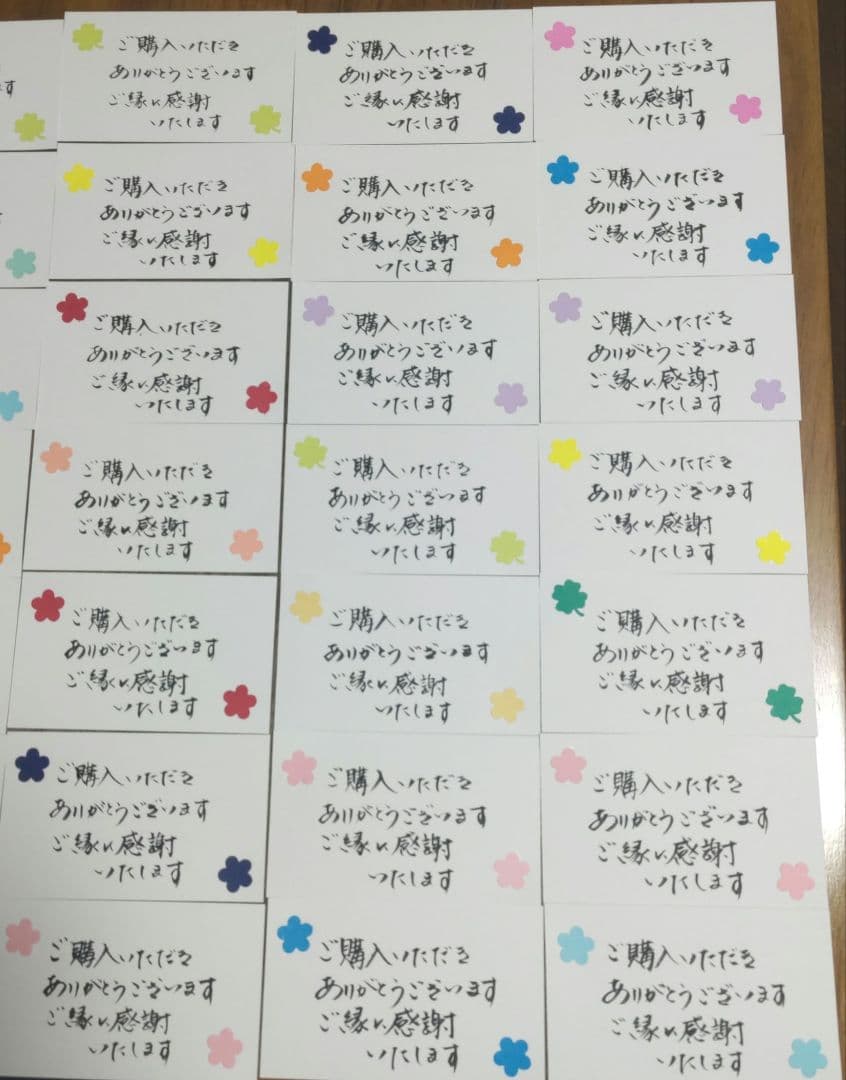 す
ご購入いただき
ありがとうございます
ご縁に感謝
いたします
ご購入いただき
ありがとうございます
ご縁に感謝
いたします
ご購入いただき
ありがとうございます
ご縁に感謝
いたします
ご購入いただき
ありがとうございます
ご縁に感謝
いたします
ご購入いただき
ありがとうございます
ご縁に感謝
いたします
ご購入いただき
ありがとうございます
ご縁に感謝
いたします
ご購入いただき
ありがとうございます
ご縁に感謝
いたします
ご購入いただき
ありがとうございます
ご縁に感謝
いたします
ご購入いただき
ありがとうございます
ご縁に感謝
いたします
ご購入いただき
ありがとうございます
ご縁に感謝
いたします
ご購入いただき
ありがとうございます
ご縁に感謝
いたします
ご購入いただき
ありがとうございます
ご縁に感謝
いたします
ご購入いただき
ありがとうございます
ご縁に感謝
いたします
ご購入いただき
ありがとうございます
ご縁に感謝
いたします
ご購入いただき
ありがとうございます
ご縁に感謝
いたします
ご購入いただき
ありがとうございます
ご縁に感謝
いたします
ご購入いただき
ありがとうございます
ご縁に感謝
いたします
ご購入いただき
ありがとうございます
ご縁に感謝
いたします
ご購入いただき
ありがとうございます
ご縁に感謝
いたします
ご購入いただき
ありがとうございます
ご縁に感謝
いたします
ご購入いただき
ありがとうございます
ご縁に感謝
いたします